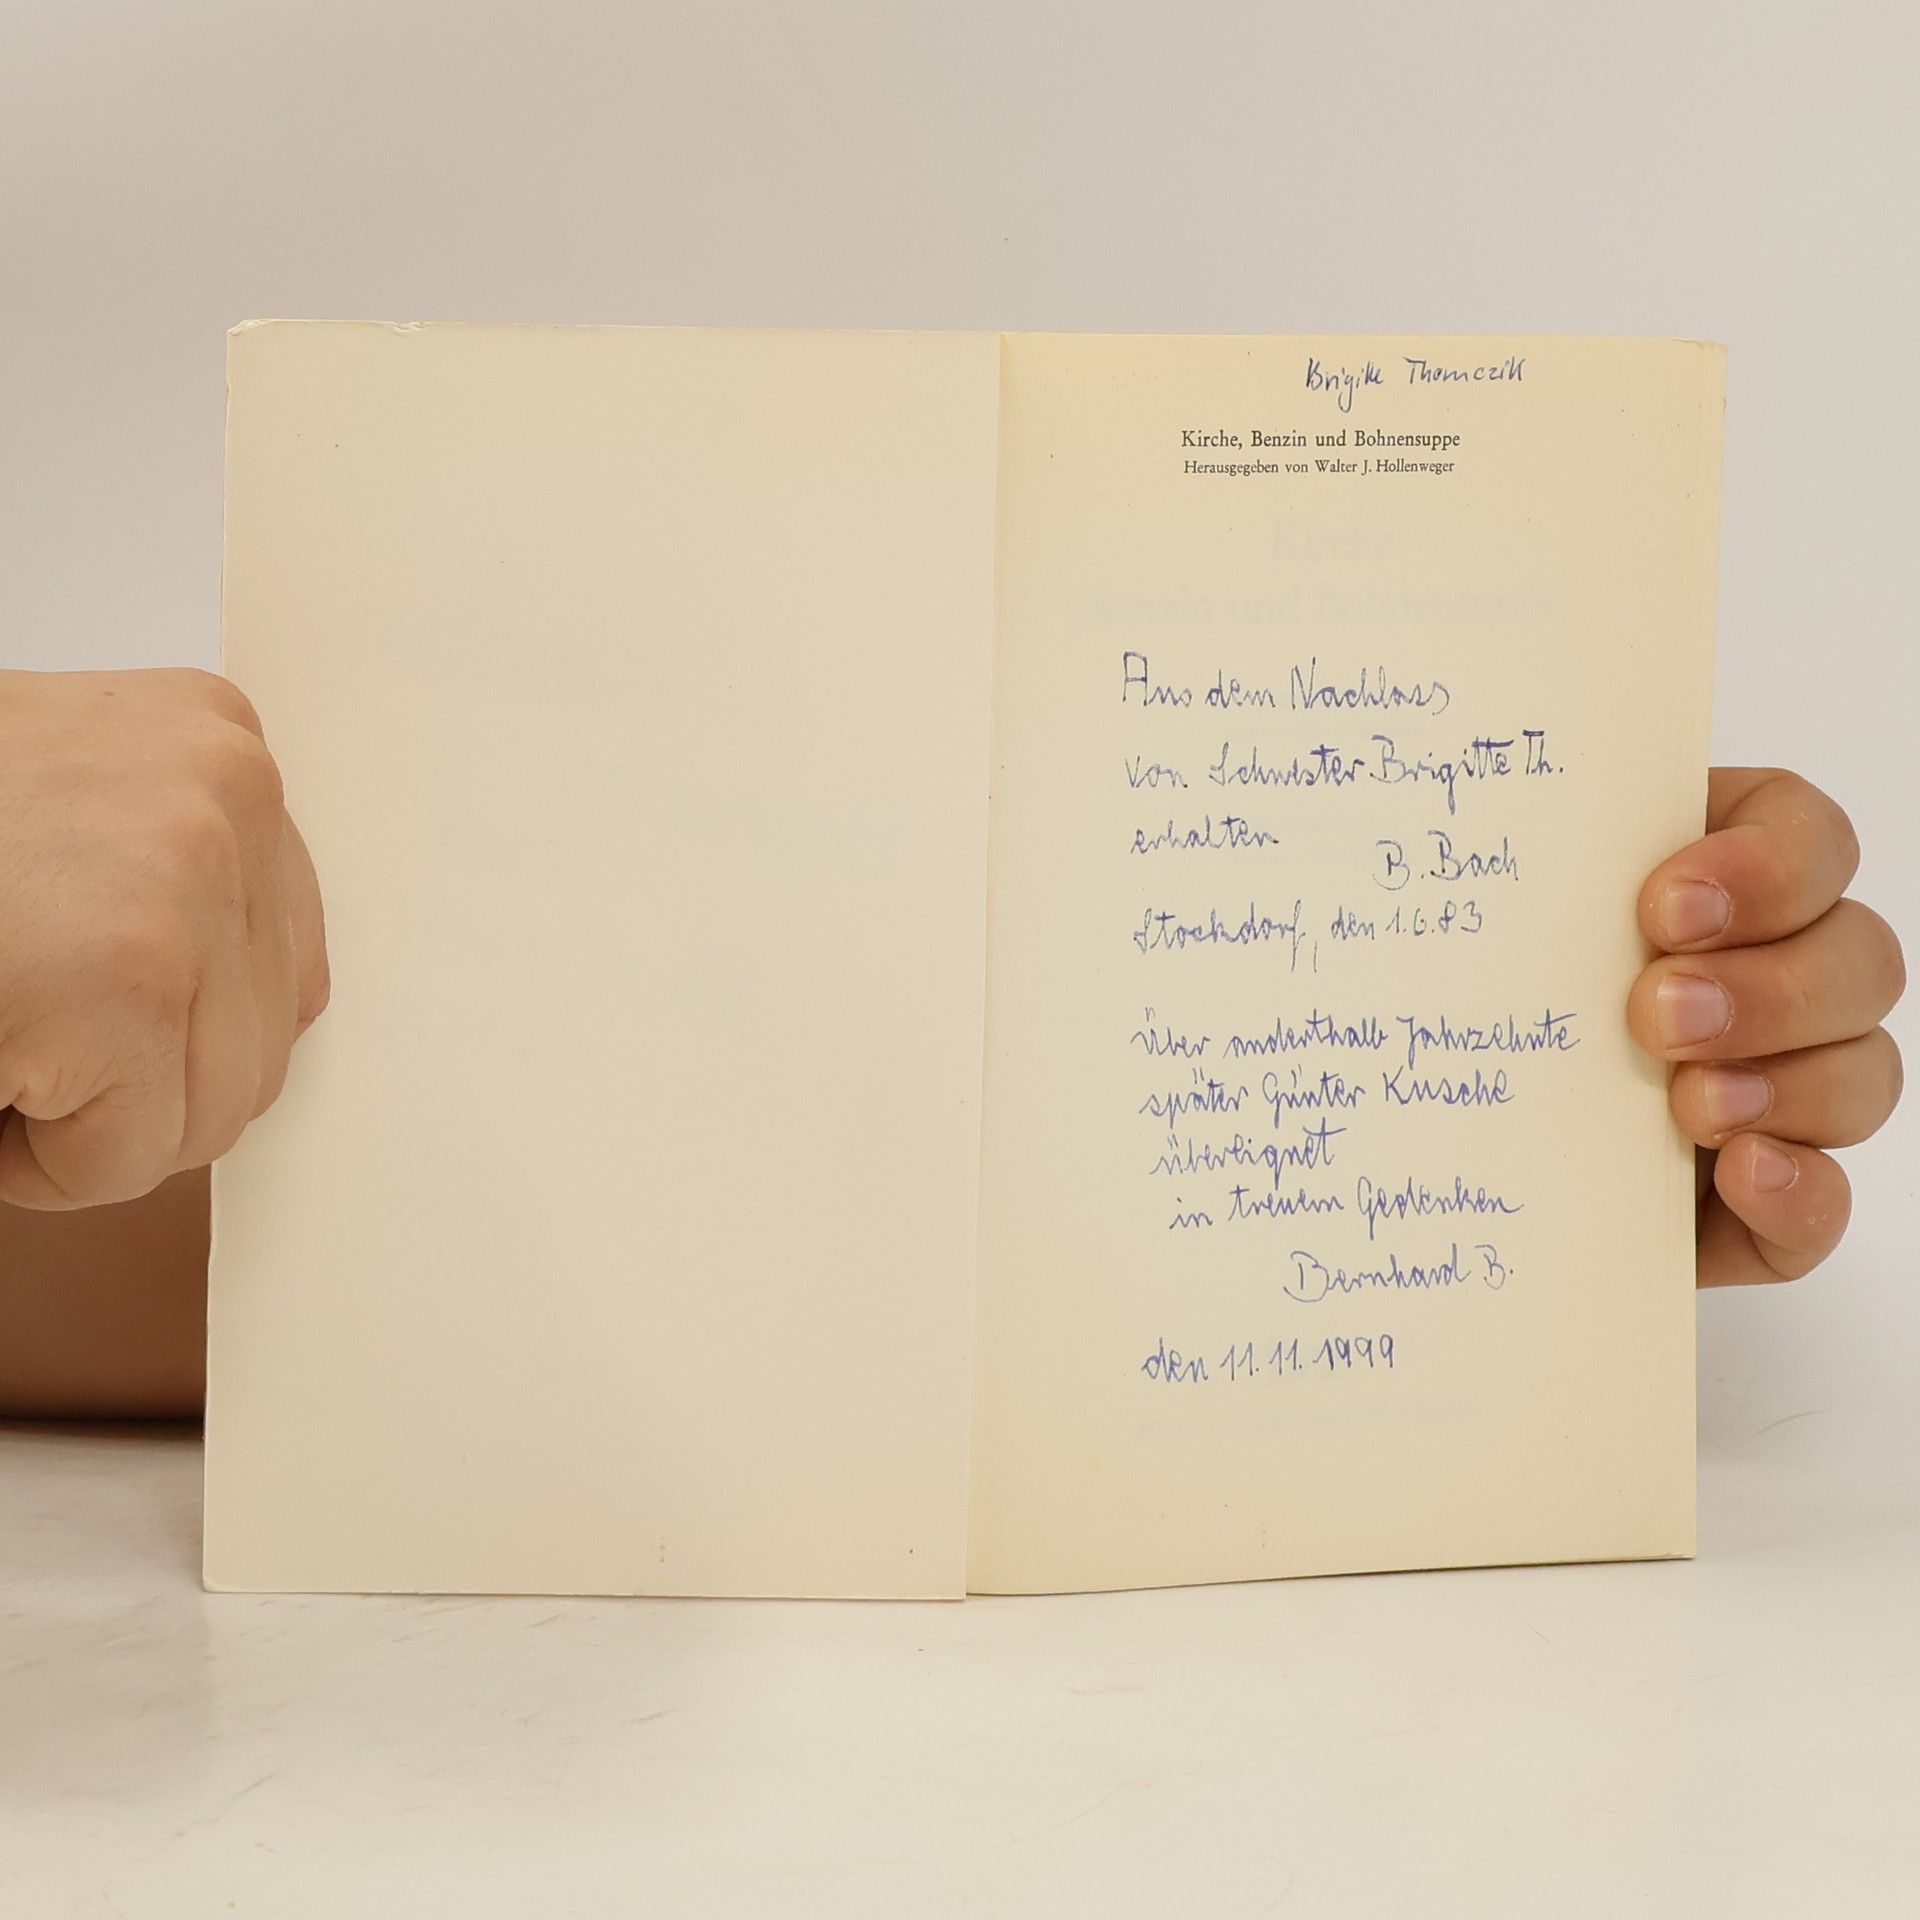 Brigitte Thomczik
Kirche, Benzin und Bohnensuppe
Herausgegeben von Walter J. Hollenweger
Aus dem Nachlass
von Schwester Brigitte Th.
erhalten
B. Bach
Stockdorf, den 1.6.83
Über anderthalb Jahrzehnte
später Günter Kusche
übereignet
in treuem Gedenken
Bernhard B.
den 11.11.1999